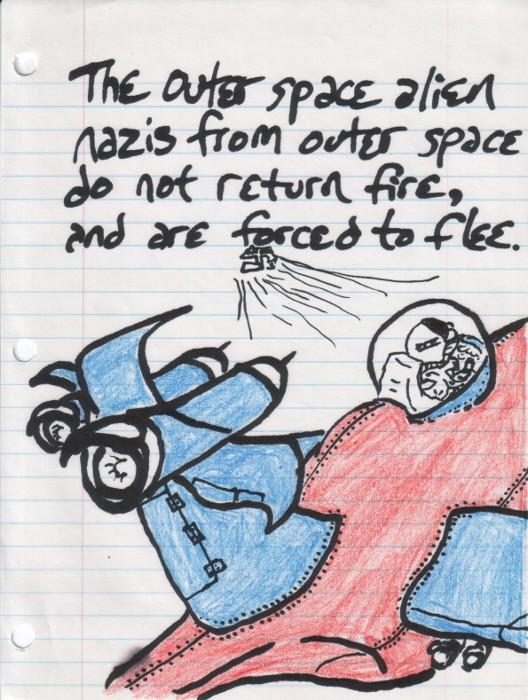 The outer space alien
nazis from outer space
do not return fire,
and are forced to flee.